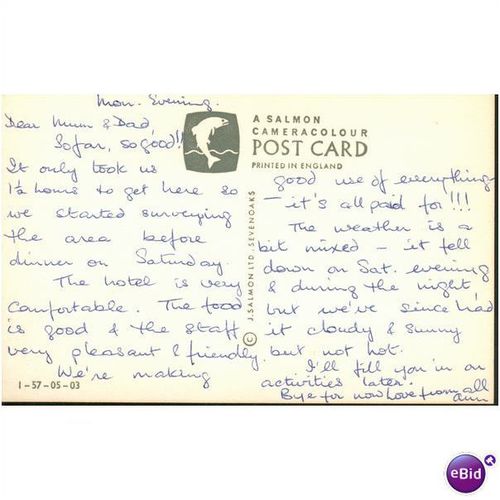 Mon. Evening.
Dear Mum & Dad,
So far, so good!!
It only took us
1½ hours to get here so
we started surveying
the area before
dinner on Saturday.
The hotel is very
comfortable. The food
is good & the staff
very pleasant & friendly.
We're making
1-57-05-03
A SALMON
CAMERACOLOUR
POST CARD
PRINTED IN ENGLAND
© J. SALMON LTD. SEVENOAKS
good use of everything
- it's all paid for!!!
The weather is a
bit mixed - it fell
down on Sat. evening
& during the night
but we've since had
it cloudy & sunny
but not hot.
I'll fill you in on
activities later.
Bye for now Love from all
Ann
eBid